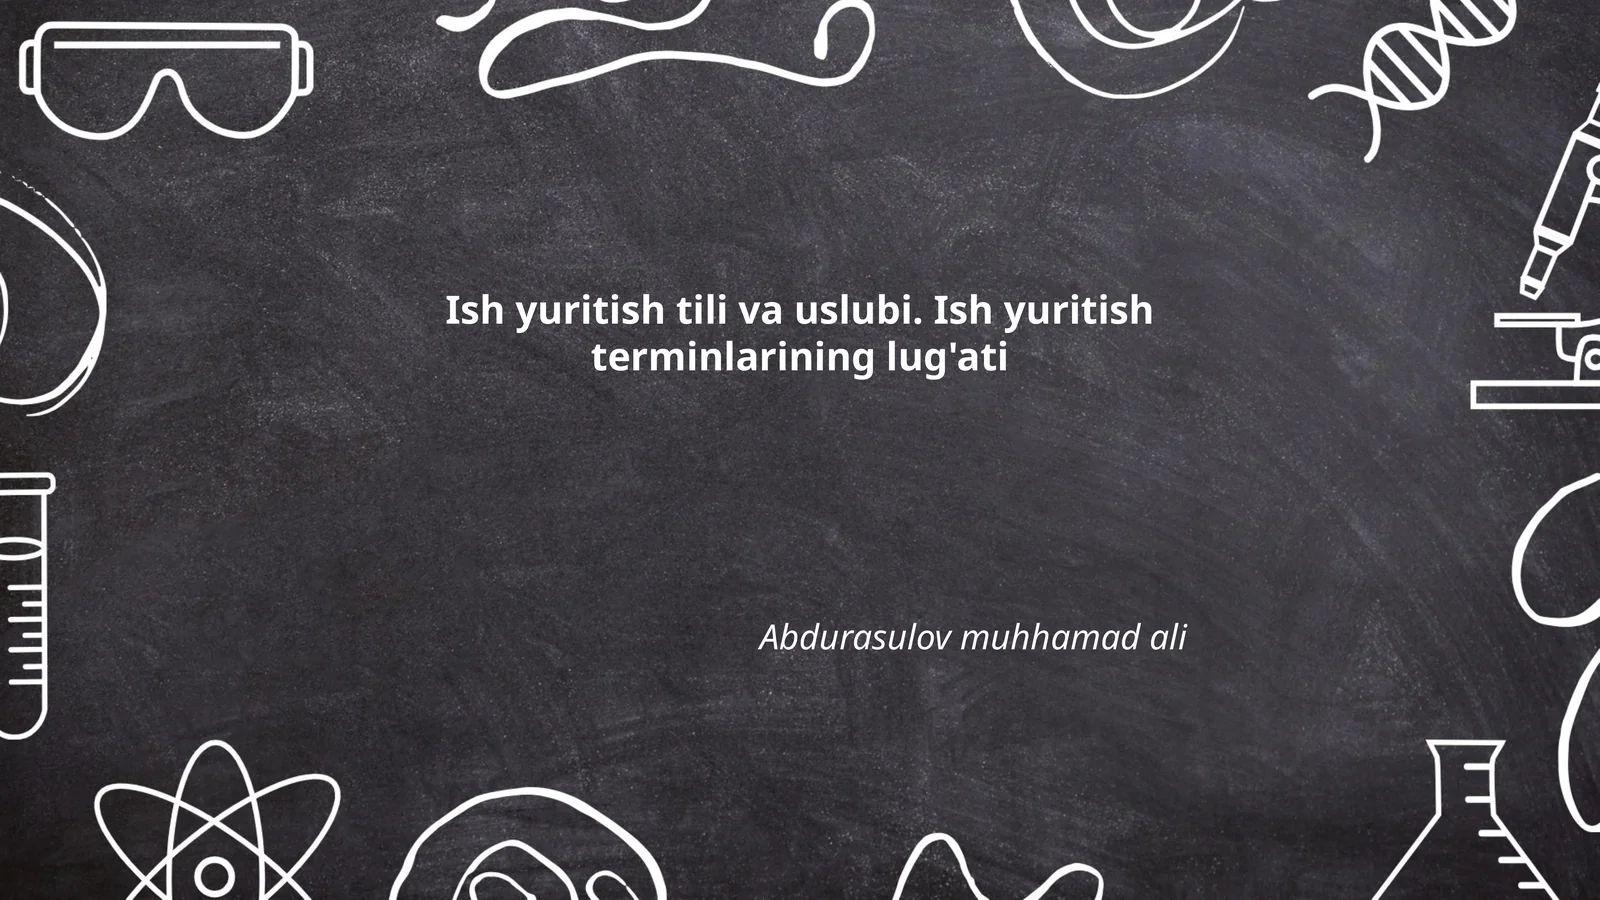 Ish yuritish tili va uslubi. Ish yuritish
terminlarining lug'ati
Abdurasulov muhhamad ali